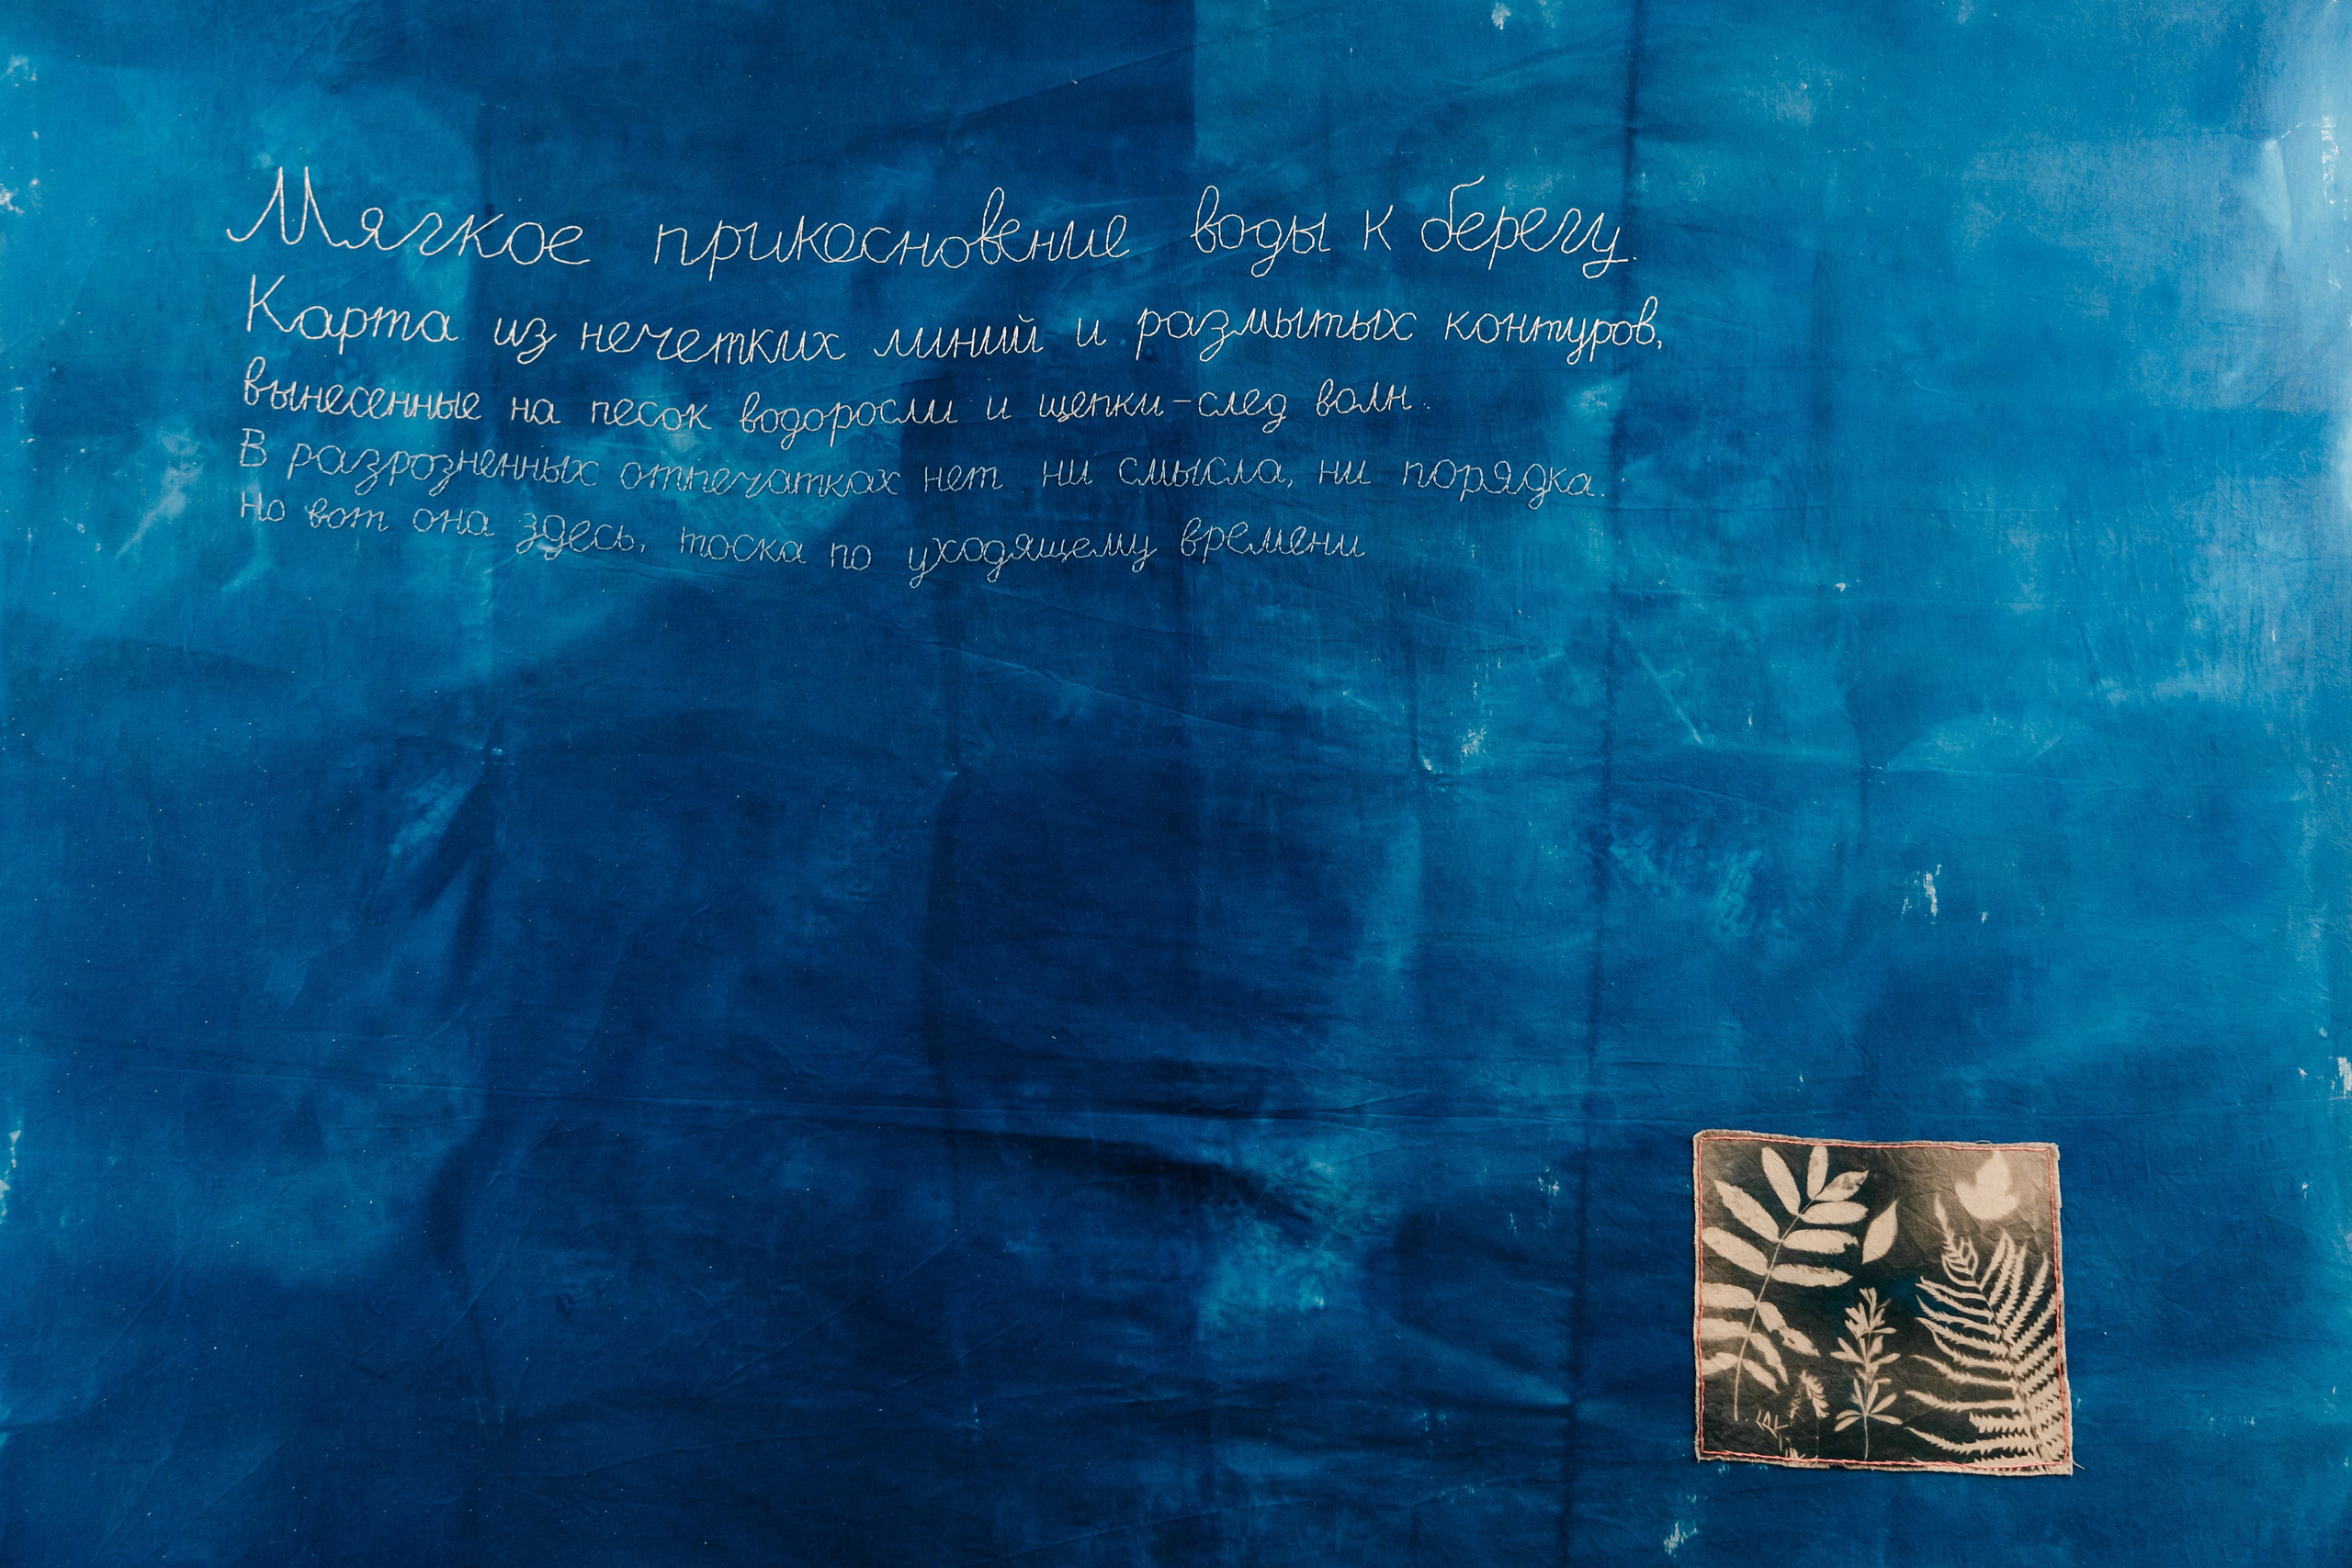 Мягкое прикосновение воды к берегу.
Карта из нечетких линий и размытых контуров,
вынесенные на песок водоросли и щепки-след волн.
В разрозненных отпечатках нет ни смысла, ни порядка.
Но вот она здесь, тоска по уходящему времени